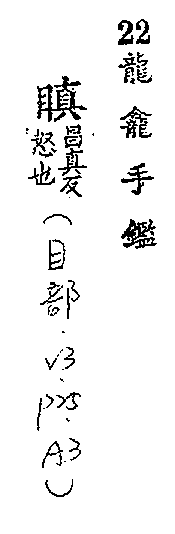 22龍龕手鑑
瞋昌真反怒也(目部.V3.P25.A3)